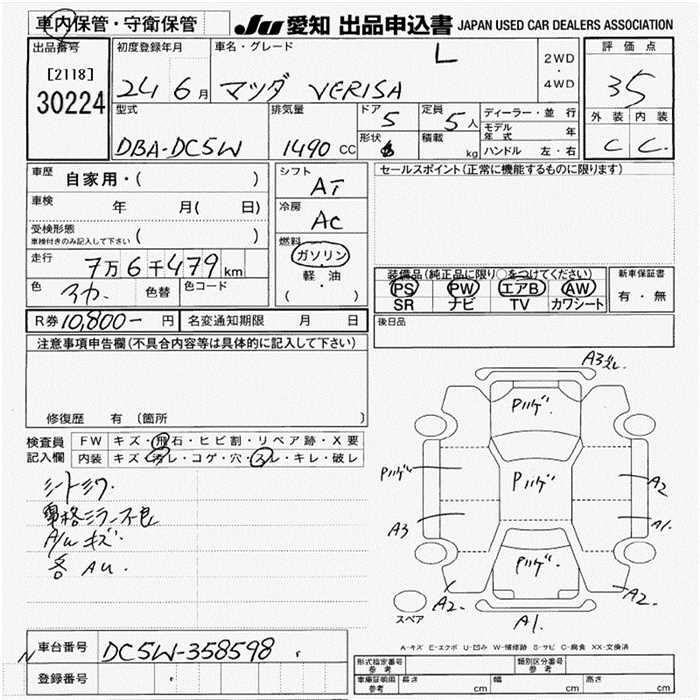 車内保管・守衛保管
JU 愛知 出品申込書 JAPAN USED CAR DEALERS ASSOCIATION
出品番号
[2118]
30224
初度登録年月
24 6月
車名・グレード
マツダ VERISA L
2WD
・
4WD
評価点
35
外装 内装
C C
型式
DBA-DC5W
排気量
1490 CC
ドア
5
形状
定員
5人
積載
kg
ディーラー・並行
モデル年式 年
ハンドル 左・右
車歴
自家用・( )
車検
年 月( 日)
受検形態
車検付きのみ記入して下さい ( )
走行
7万6千479km
色
色替
色コード
シフト
AT
冷房
AC
燃料
ガソリン
軽・油
( )
セールスポイント(正常に機能するものに限ります)
装備品(純正品に限り○をつけてください)
PS PW エアB AW
SR ナビ TV カワシート
新車保証書
有・無
後日品
R券 10,800- 円
名変通知期限 月 日
注意事項申告欄(不具合内容等は具体的に記入して下さい)
修復歴 有 (箇所 )
検査員
記入欄
FW キズ・飛石・ヒビ割・リペア跡・X要
内装 キズ・汚レ・コゲ・穴・スレ・キレ・破レ
シートシワ
車格ミラー不良
A/wキズ
各AU
A3
Pハゲ
Pハゲ
Pハゲ
Pハゲ
A2
A3
A1
A2
A2
A1
スペア
A-キズ E-エクボ U-凹み W-補修跡 S-サビ C-腐食 XX-交換済
車台番号
DC5W-358598
登録番号
形式指定番号
参考
類別区分番号
参考
車庫証明用
参考
長さ cm
幅 cm
高さ cm